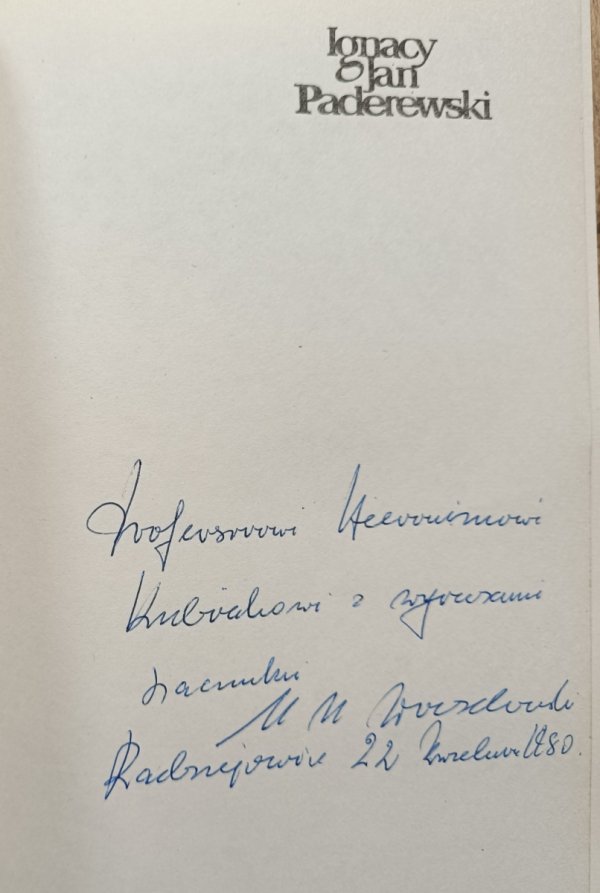 Ignacy
Jan
Paderewski
Profesorowi Hieronimowi
z wyrazami
szacunku
M M Drozdowski
Radziejowice 22 kwietnia 1980.